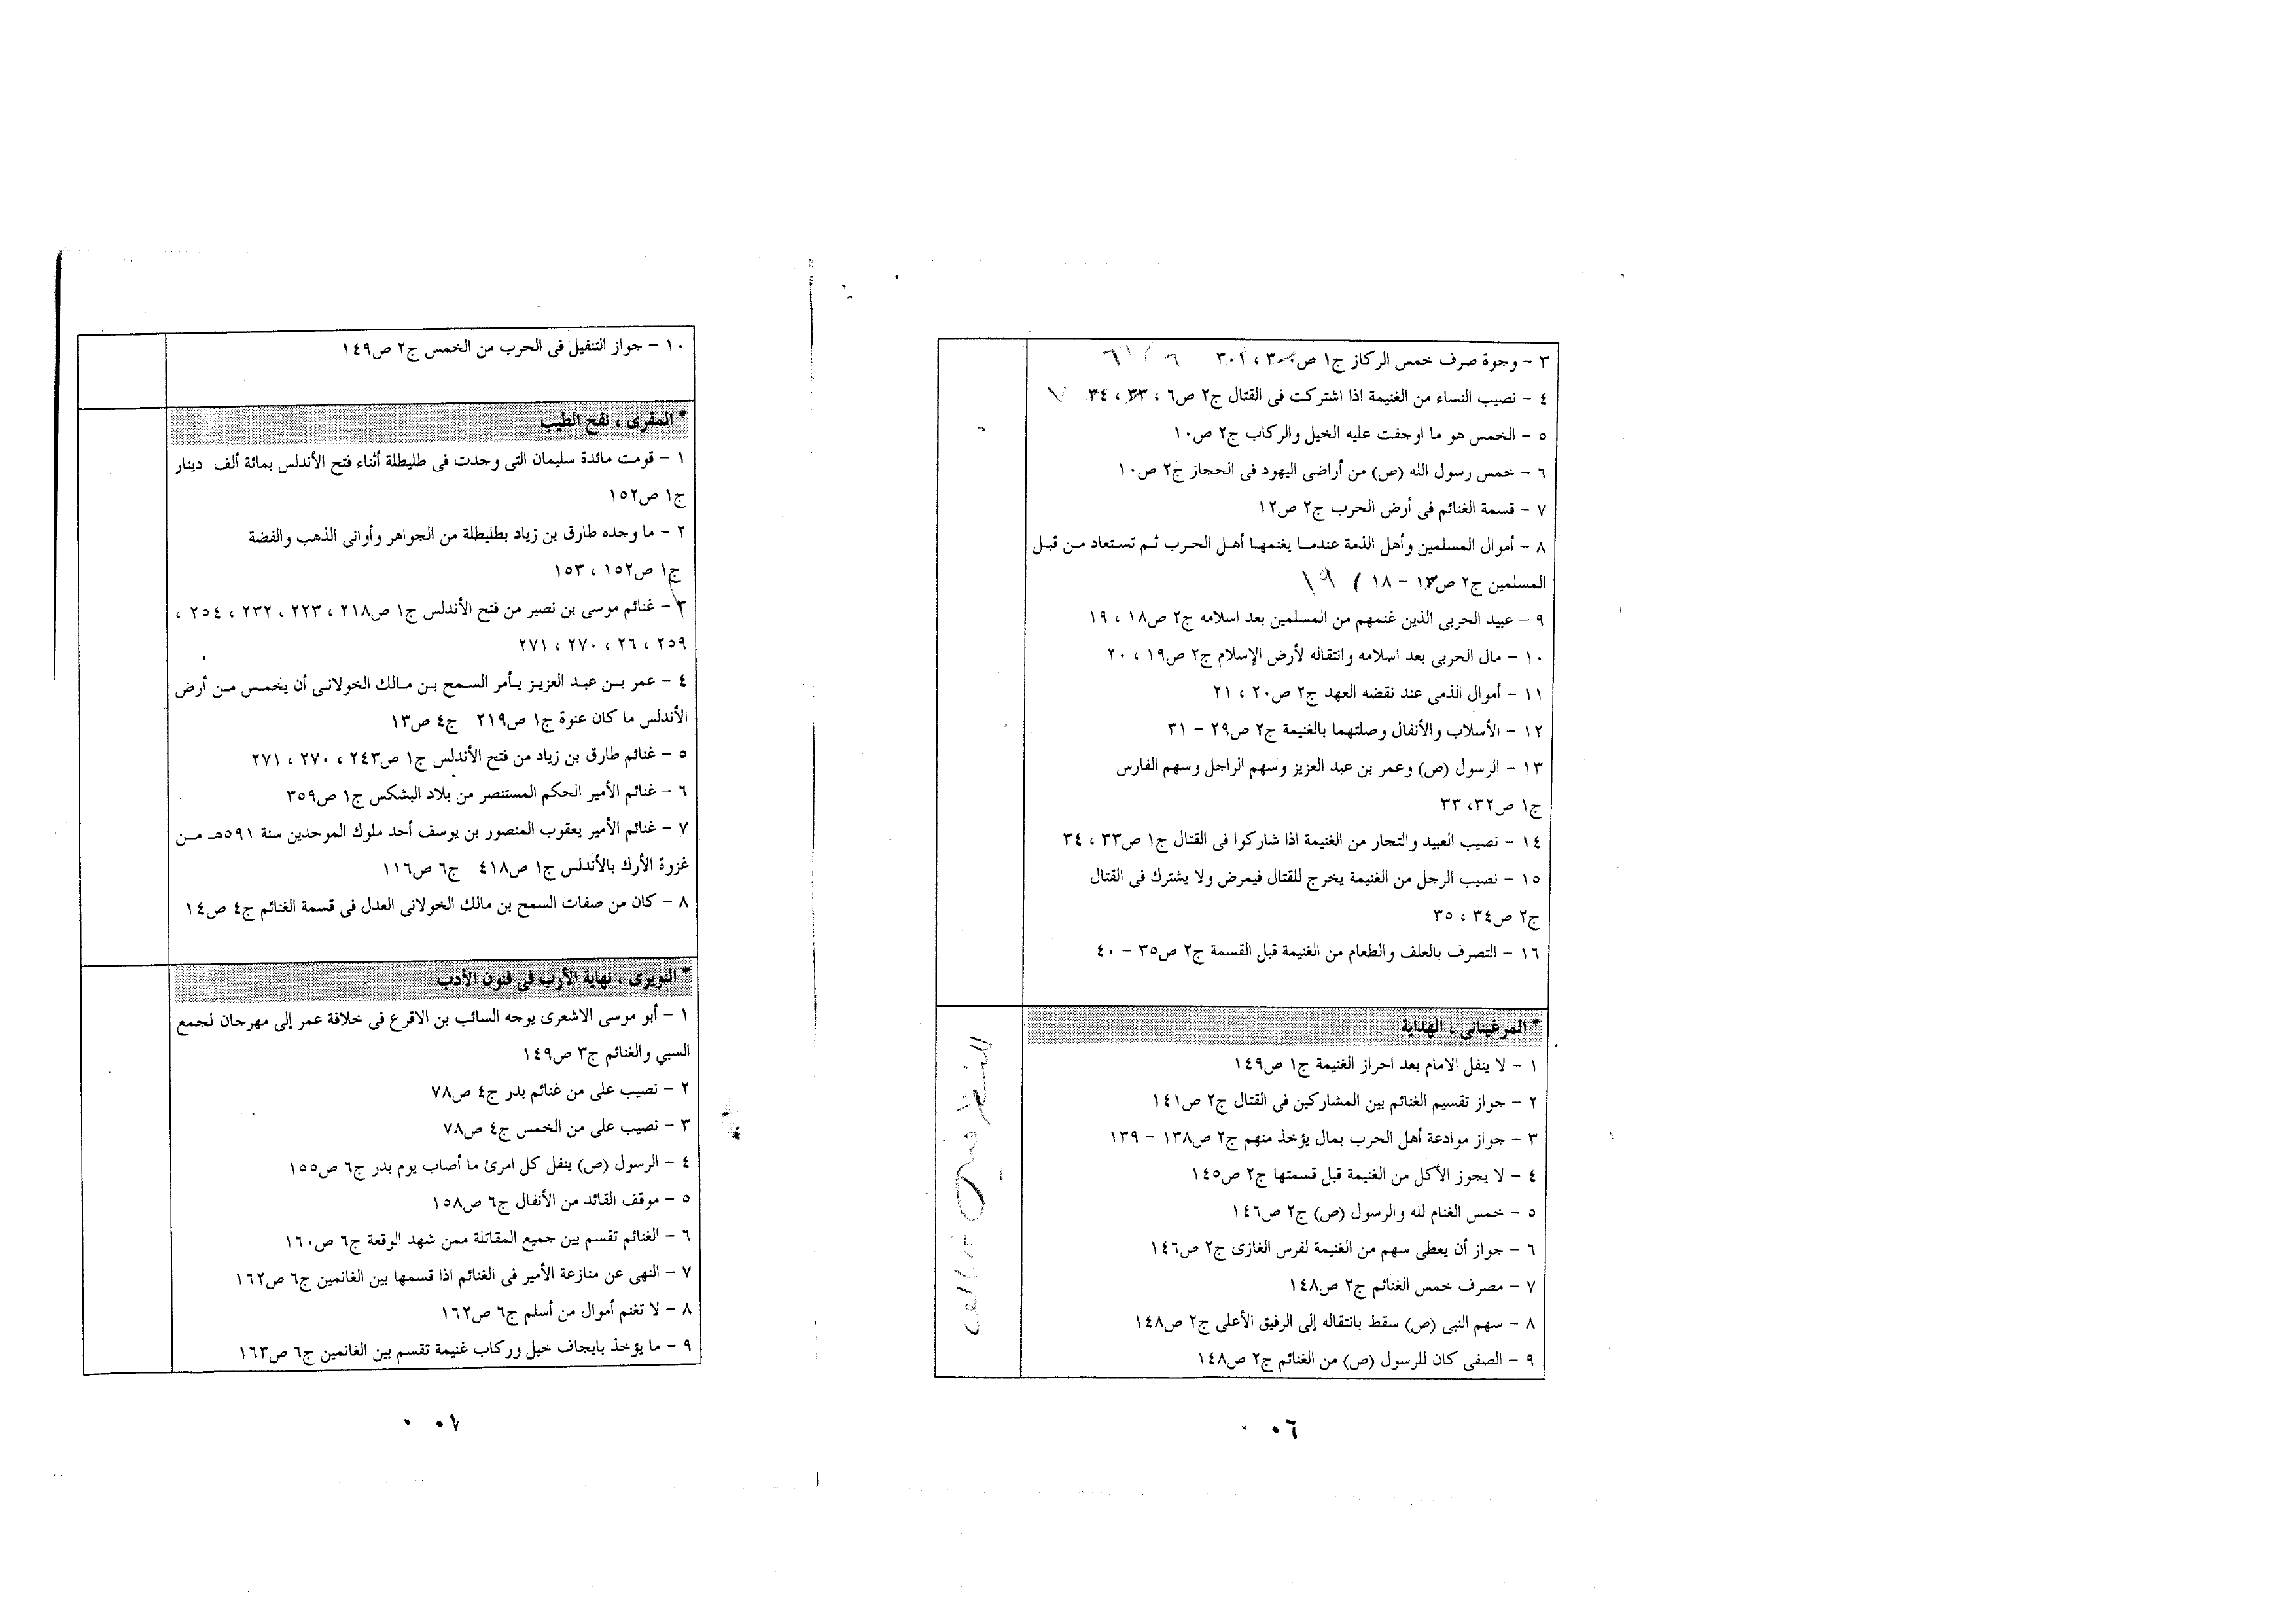 ٣ – وجوة صرف خمس الركاز ج١ ص٣٠٠ ، ٣٠١
٤ – نصيب النساء من الغنيمة اذا اشتركت فى القتال ج٢ ص٦ ، ٣٣ ، ٣٤
٥ – الخمس هو ما اوجفت عليه الخيل والركاب ج٢ ص١٠
٦ – خمس رسول الله (ص) من أراضى اليهود فى الحجاز ج٢ ص١٠
٧ – قسمة الغنائم فى أرض الحرب ج٢ ص١٢
٨ – أموال المسلمين وأهل الذمة عندما يغنمها أهل الحرب ثم تستعاد من قبل
المسلمين ج٢ ص١٣ – ١٨ ١٩
٩ – عبيد الحربى الذين غنمهم من المسلمين بعد اسلامه ج٢ ص١٨ ، ١٩
١٠ – مال الحربى بعد اسلامه وانتقاله لأرض الإسلام ج٢ ص١٩ ، ٢٠
١١ – أموال الذمى عند نقضه العهد ج٢ ص٢٠ ، ٢١
١٢ – الأسلاب والأنفال وصلتهما بالغنيمة ج٢ ص٢٩ – ٣١
١٣ – الرسول (ص) وعمر بن عبد العزيز وسهم الراجل وسهم الفارس
ج١ ص٣٢، ٣٣
١٤ – نصيب العبيد والتجار من الغنيمة اذا شاركوا فى القتال ج١ ص٣٣ ، ٣٤
١٥ – نصيب الرجل من الغنيمة يخرج للقتال فيمرض ولا يشترك فى القتال
ج٢ ص٣٤ ، ٣٥
١٦ – التصرف بالعلف والطعام من الغنيمة قبل القسمة ج٢ ص٣٥ – ٤٠
* المرغينانى ، الهداية
١ – لا ينفل الامام بعد احراز الغنيمة ج١ ص١٤٩
٢ – جواز تقسيم الغنائم بين المشاركين فى القتال ج٢ ص١٤١
٣ – جواز موادعة أهل الحرب بمال يؤخذ منهم ج٢ ص١٣٨ – ١٣٩
٤ – لا يجوز الأكل من الغنيمة قبل قسمتها ج٢ ص١٤٥
٥ – خمس الغنام لله والرسول (ص) ج٢ ص١٤٦
٦ – جواز أن يعطى سهم من الغنيمة لفرس الغازى ج٢ ص١٤٦
٧ – مصرف خمس الغنائم ج٢ ص١٤٨
٨ – سهم النبى (ص) سقط بانتقاله إلى الرفيق الأعلى ج٢ ص١٤٨
٩ – الصفى كان للرسول (ص) من الغنائم ج٢ ص١٤٨
٠٦
١٠ – جواز التنفيل فى الحرب من الخمس ج٢ ص١٤٩
* المقرى ، نفح الطيب
١ – قومت مائدة سليمان التى وجدت فى طليطلة أثناء فتح الأندلس بمائة ألف دينار
ج١ ص١٥٢
٢ – ما وجده طارق بن زياد بطليطلة من الجواهر وأوانى الذهب والفضة
ج١ ص١٥٢ ، ١٥٣
٣ – غنائم موسى بن نصير من فتح الأندلس ج١ ص٢١٨ ، ٢٢٣ ، ٢٣٢ ، ٢٥٤ ،
٢٥٩ ، ٢٦ ، ٢٧٠ ، ٢٧١
٤ – عمر بن عبد العزيز يأمر السمح بن مالك الخولانى أن يخمس من أرض
الأندلس ما كان عنوة ج١ ص٢١٩ ج٤ ص١٣
٥ – غنائم طارق بن زياد من فتح الأندلس ج١ ص٢٤٣ ، ٢٧٠ ، ٢٧١
٦ – غنائم الأمير الحكم المستنصر من بلاد البشكس ج١ ص٣٥٩
٧ – غنائم الأمير يعقوب المنصور بن يوسف أحد ملوك الموحدين سنة ٥٩١هـ من
غزوة الأرك بالأندلس ج١ ص٤١٨ ج٦ ص١١٦
٨ – كان من صفات السمح بن مالك الخولانى العدل فى قسمة الغنائم ج٤ ص١٤
* النويرى ، نهاية الأرب فى فنون الأدب
١ – أبو موسى الاشعرى يوجه السائب بن الاقرع فى خلافة عمر إلى مهرجان نجمع
السبي والغنائم ج٣ ص١٤٩
٢ – نصيب على من غنائم بدر ج٤ ص٧٨
٣ – نصيب على من الخمس ج٤ ص٧٨
٤ – الرسول (ص) ينفل كل امرئ ما أصاب يوم بدر ج٦ ص١٥٥
٥ – موقف القائد من الأنفال ج٦ ص١٥٨
٦ – الغنائم تقسم بين جميع المقاتلة ممن شهد الوقعة ج٦ ص١٦٠
٧ – النهى عن منازعة الأمير فى الغنائم اذا قسمها بين الغانمين ج٦ ص١٦٢
٨ – لا تغنم أموال من أسلم ج٦ ص١٦٢
٩ – ما يؤخذ بايجاف خيل وركاب غنيمة تقسم بين الغانمين ج٦ ص١٦٣
٠٧